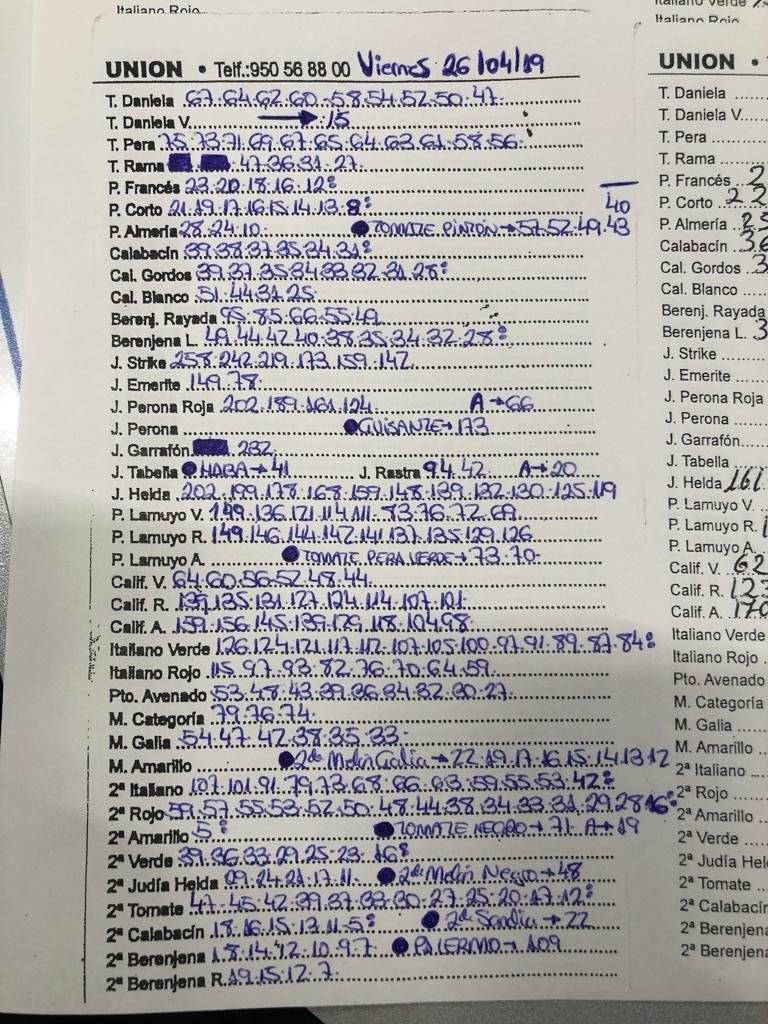 Italiano Rojo
UNION • Telf.:950 56 88 00 Viernes 26/04/19
T. Daniela 67.64.62.60.58.54.52.50.47.
T. Daniela V. → 15
T. Pera 75.73.71.69.67.65.64.63.61.58.56.
T. Rama 47.36.31.27.
P. Francés 23.20.18.16.12:
P. Corto 21.19.17.16.15.14.13.8: 40
P. Almería 28.24.10. ● TOMATE PINTÓN → 57.52.49.43
Calabacín 39.38.37.35.34.31:
Cal. Gordos 39.37.35.34.33.32.31.28:
Cal. Blanco 51.44.31.25.
Berenj. Rayada 95.85.66.55.49
Berenjena L. 49.44.42.40.38.35.34.32.28:
J. Strike 258.242.219.173.159.147.
J. Emerite 149.78.
J. Perona Roja 202.189.161.124 A→66
J. Perona ● GUISANTE→173
J. Garrafón 232
J. Tabella ● HABA→41 J. Rastra 94.42. A→20
J. Helda 202.199.178.168.159.148.139.132.130.125.119
P. Lamuyo V. 149.136.121.114.111.83.76.72.69.
P. Lamuyo R. 149.146.144.142.141.137.135.129.126
P. Lamuyo A. ● TOMATE PERA VERDE→73.70.
Calif. V. 64.60.56.52.48.44.
Calif. R. 139.135.131.127.124.114.107.101.
Calif. A. 159.156.145.139.129.118.104.98.
Italiano Verde 126.124.121.117.112.107.105.100.97.91.89.87.84:
Italiano Rojo 115.97.93.82.76.70.64.59.
Pto. Avenado 53.48.43.39.36.34.32.30.27.
M. Categoría 79.76.74.
M. Galia 54.47.42.38.35.33.
M. Amarillo ● 2ª Melón Galia → 22.19.17.16.15.14.13.12
2ª Italiano 107.101.91.79.73.68.66.63.59.55.53.42:
2ª Rojo 59.57.55.53.52.50.48.44.38.34.33.31.29.28.16:
2ª Amarillo 5: ● TOMATE NEGRO→ 71. A→19
2ª Verde 39.36.33.29.25.23.16:
2ª Judía Helda 09.24.21.17.11. ● 2ª Melón Negro→48
2ª Tomate 47.45.42.39.37.33.30.27.25.20.17.12:
2ª Calabacín 18.16.15.13.11.5: ● 2ª Sandía → 22
2ª Berenjena 18.14.12.10.9.7. ● PALERMO→ 109
2ª Berenjena R. 19.15.12.7.
Italiano Verde
Italiano Rojo
UNION •
T. Daniela
T. Daniela V.
T. Pera
T. Rama
P. Francés 2
P. Corto 22
P. Almería
Calabacín 36
Cal. Gordos 3
Cal. Blanco
Berenj. Rayada
Berenjena L. 3
J. Strike
J. Emerite
J. Perona Roja
J. Perona
J. Garrafón
J. Tabella
J. Helda 161
P. Lamuyo V.
P. Lamuyo R.
P. Lamuyo A.
Calif. V. 62
Calif. R. 123
Calif. A. 170
Italiano Verde
Italiano Rojo
Pto. Avenado
M. Categoría
M. Galia
M. Amarillo
2ª Italiano
2ª Rojo
2ª Amarillo
2ª Verde
2ª Judía Hel
2ª Tomate
2ª Calabacín
2ª Berenjena
2ª Berenjena